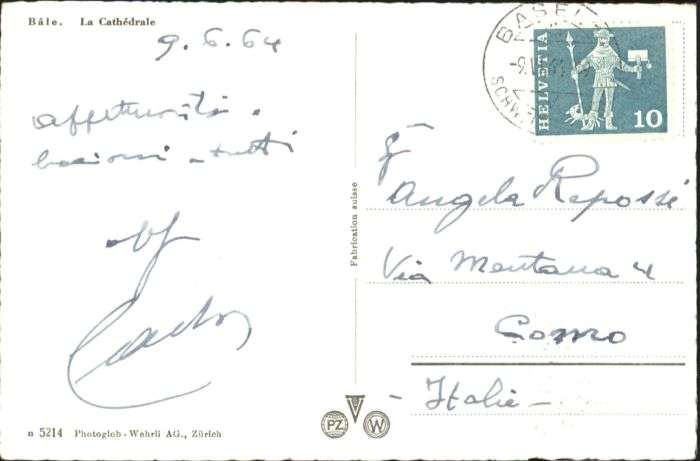 Bâle. La Cathédrale
9.6.64
affettuosità
bacioni a tutti
BASEL
HELVETIA
10
Fabrication suisse
Angela Repossi
Via Mentana 4
Como
- Italie -
PZ W
n 5214 Photoglob-Wehrli AG., Zürich